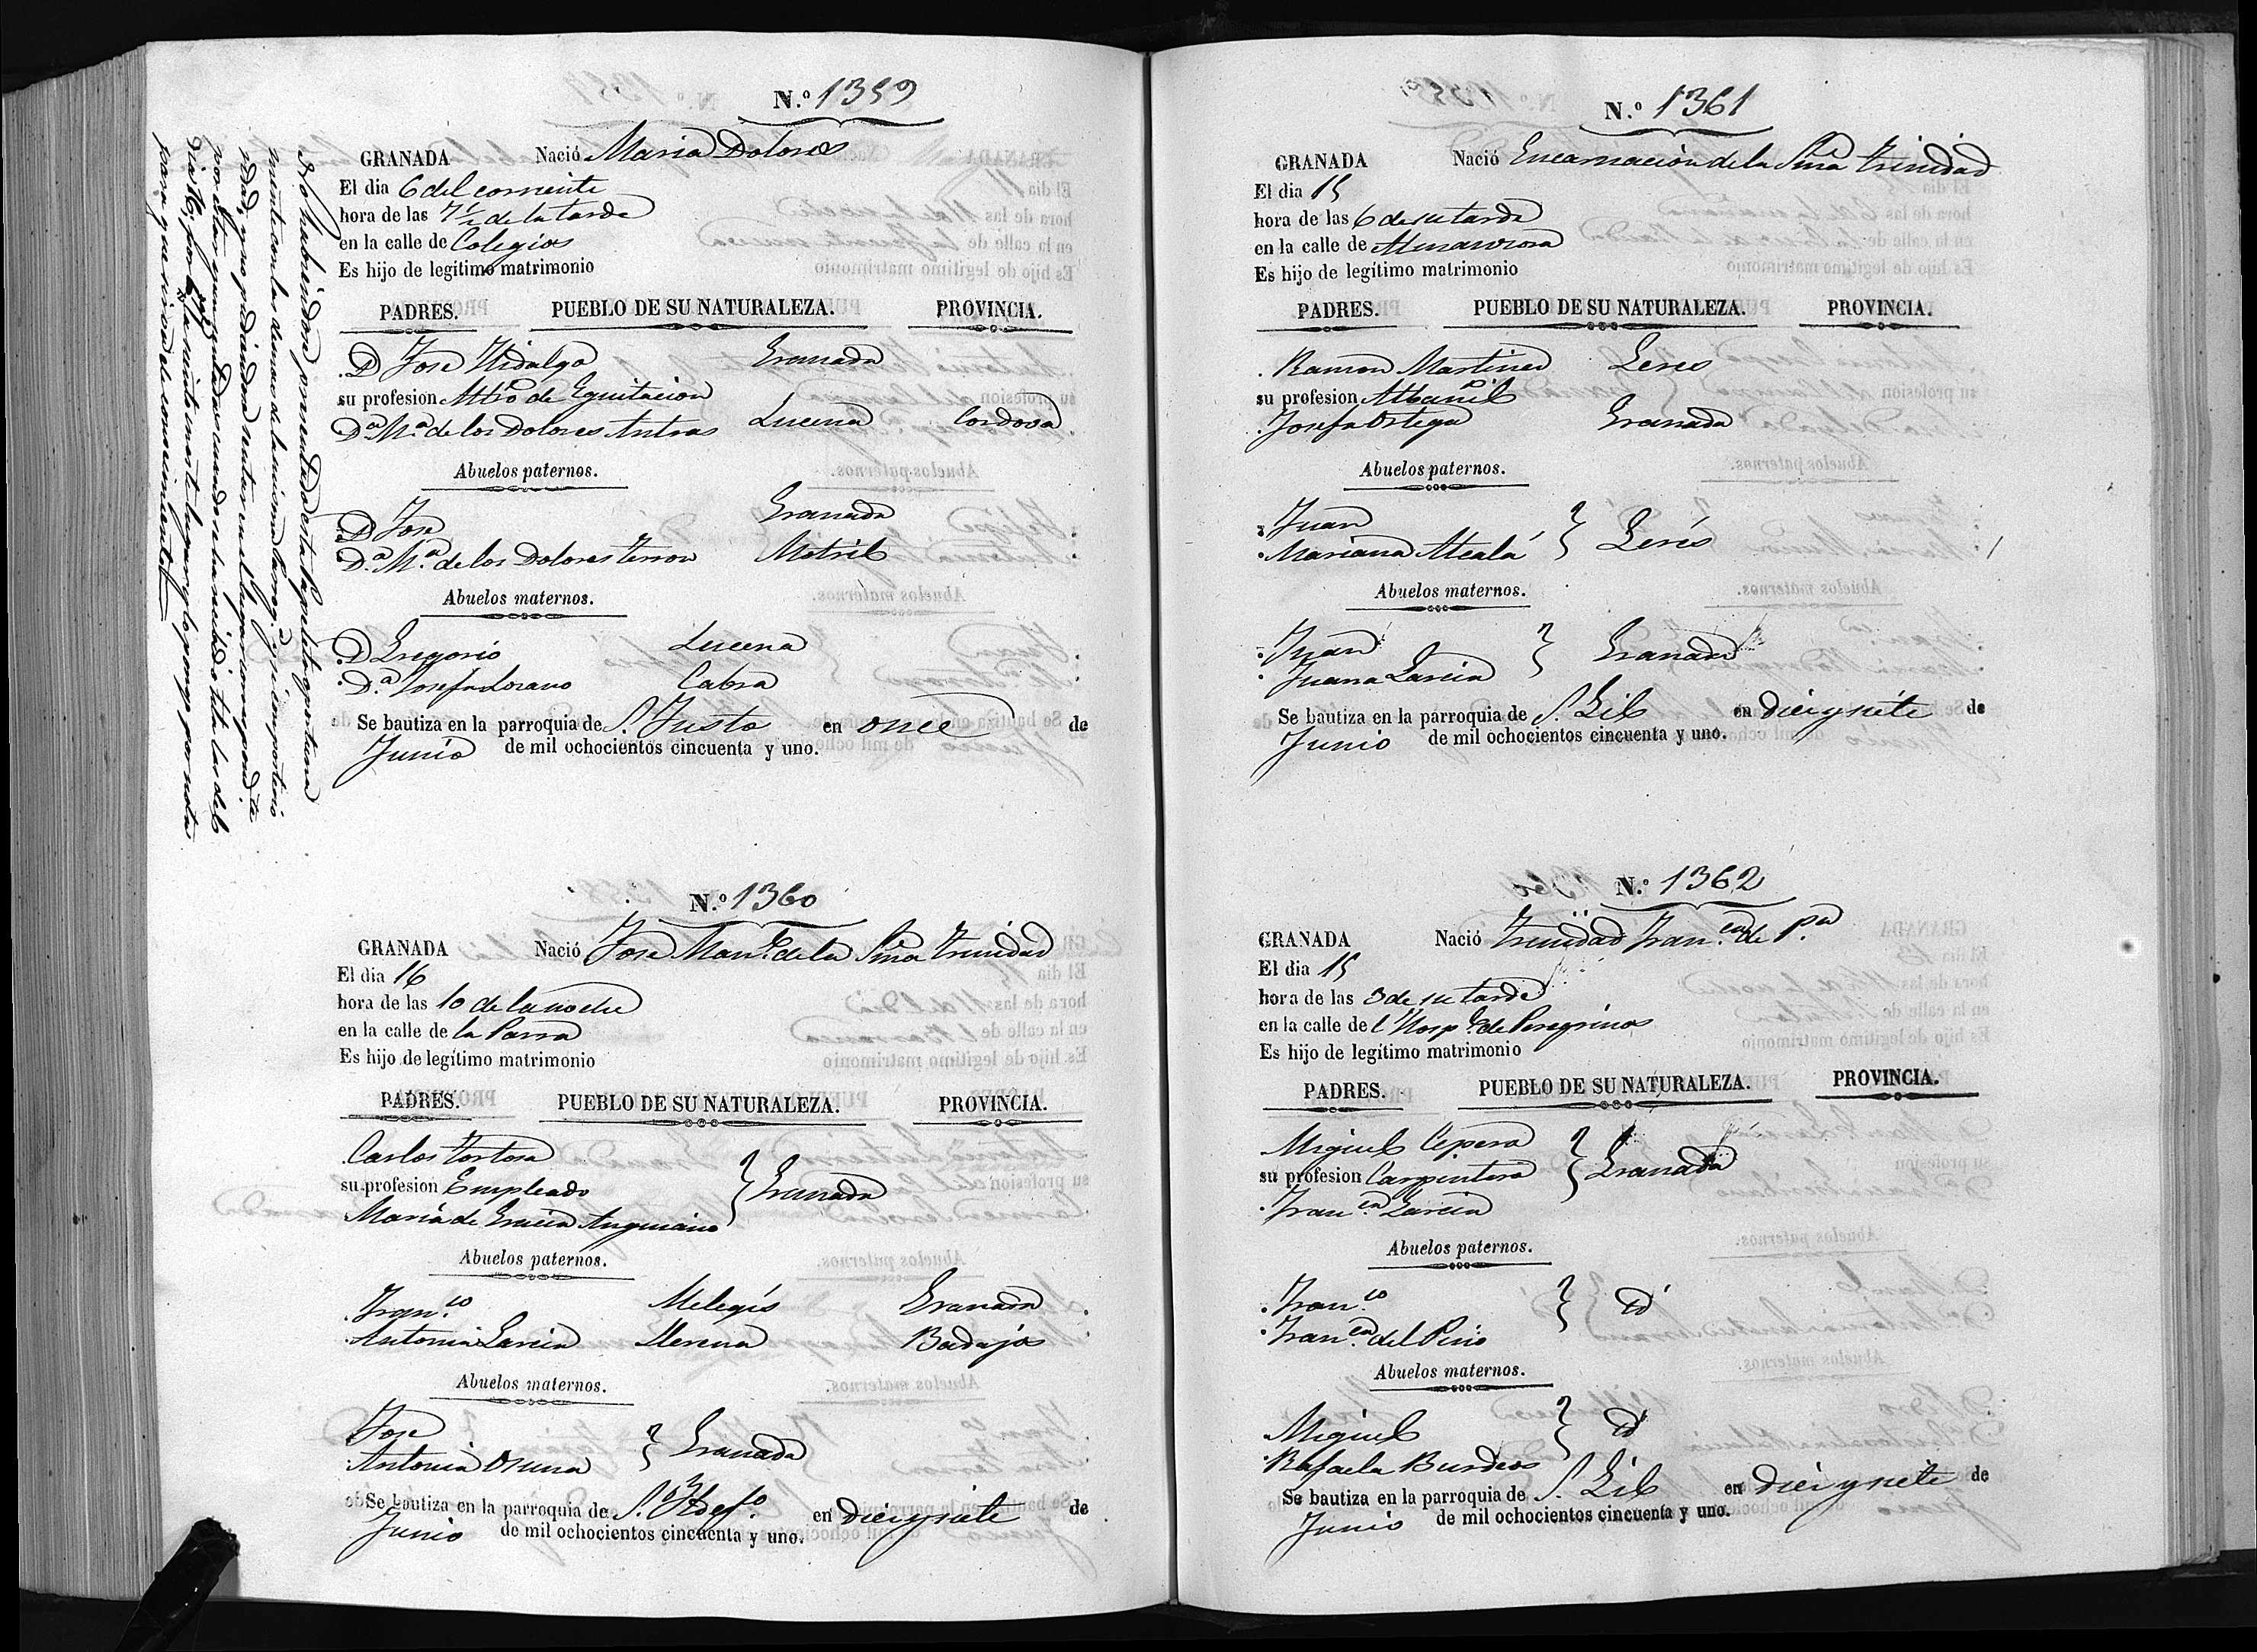 N.º 1359
GRANADA Nació Maria Dolores
El dia 6 del corriente
hora de las 7 1/2 de la tarde
en la calle de Colegios
Es hijo de legítimo matrimonio
PADRES. PUEBLO DE SU NATURALEZA. PROVINCIA.
D Jose Hidalgo Granada
su profesion Mtro de Equitacion
Dª Mª de los Dolores Antras Lucena Cordova
Abuelos paternos.
D Jose Granada
Dª Mª de los Dolores Terron Motril
Abuelos maternos.
D Gregorio Lucena
Dª Josefa Lozano Cabra
Se bautiza en la parroquia de S. Justo en once de
Junio de mil ochocientos cincuenta y uno.
No habiendose presentado esta papeleta oportuna
mente con las demas de la misma Parroqª y
dad, y no pudiendose sentar en el lugar correspondte
por estar cuando se ha recibido
dia 16, por la siento en este lugar y lo pongo por nota
para que sirva de conocimiento
N.º 1360
GRANADA Nació Jose Manl de la Sma Trinidad
El dia 16
hora de las 10 de la noche
en la calle de la Parra
Es hijo de legítimo matrimonio
PADRES. PUEBLO DE SU NATURALEZA. PROVINCIA.
Carlos Tortosa
su profesion Empleado } Granada
Maria de Gracia Anguiano
Abuelos paternos.
Franco Melegís Granada
Antonia Garcia Llerena Badajos
Abuelos maternos.
Jose
Antonia Osuna } Granada
Se bautiza en la parroquia de S. Ildefo en diez y siete de
Junio de mil ochocientos cincuenta y uno.
N.º 1361
GRANADA Nació Encarnacion de la Sma Trinidad
El dia 15
hora de las 6 de su tarde
en la calle de Almanzora
Es hijo de legítimo matrimonio
PADRES. PUEBLO DE SU NATURALEZA. PROVINCIA.
Ramon Martinez
su profesion Albañil
Josefa Ortega Granada
Abuelos paternos.
Juan
Mariana Alcalá }
Abuelos maternos.
Juan
Juana Garcia } Granada
Se bautiza en la parroquia de S. Gil en diez y siete de
Junio de mil ochocientos cincuenta y uno.
N.º 1362
GRANADA Nació Trinidad Franca de Pa
El dia 15
hora de las 3 de su tarde
en la calle del Hospl de Peregrinos
Es hijo de legítimo matrimonio
PADRES. PUEBLO DE SU NATURALEZA. PROVINCIA.
Miguel Cepero
su profesion Carpintero } Granada
Franca Garcia
Abuelos paternos.
Franco
Franca del Pino } id
Abuelos maternos.
Miguel
Rafaela Burdeos } id
Se bautiza en la parroquia de S. Gil en diez y siete de
Junio de mil ochocientos cincuenta y uno.